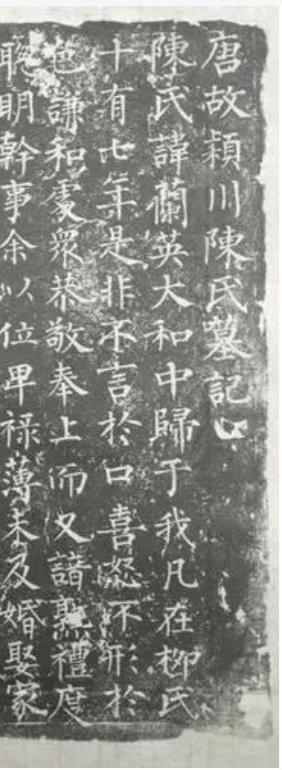 唐故潁川陳氏墓記
陳氏諱蘭英大和中歸于我凡在柳氏
十有七年是非不言於口喜怒不形於
色謙和處衆恭敬奉上而又諳熟禮度
聰明幹事余以位卑禄薄未及婚娶家